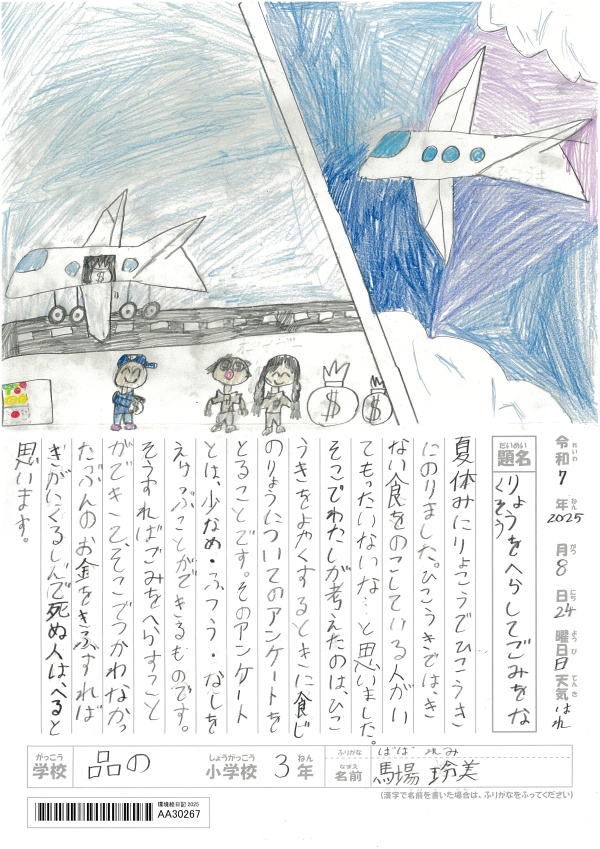 令和 7年 2025 8月 24日 曜日 日 天気 はれ
れいわ ねん がつ にち ようび てんき
だいめい
題名
りょうをへらしてごみをな
くそう
夏休みにりょこうでひこうき
にのりました。ひこうきでは、き
ない食をのこしている人がい
てもったいないな…と思いました。
そこでわたしが考えたのは、ひこ
うきをよやくするときに食じ
のりょうについてのアンケートを
とることです。そのアンケート
とは、少なめ・ふつう・なしを
えらぶことができるものです。
そうすればごみをへらすこと
ができて、そこでつかわなかっ
たぶんのお金をきふすれば
きがにくるしんで死ぬ人は、へると
思います。
がっこう
学校
品の
しょうがっこう
小学校
3
ねん
年
ふりがな
ばば れみ
なまえ
名前
馬場 玲美
(漢字で名前を書いた場合は、ふりがなをふってください)
環境絵日記2025
AA30267
$
$